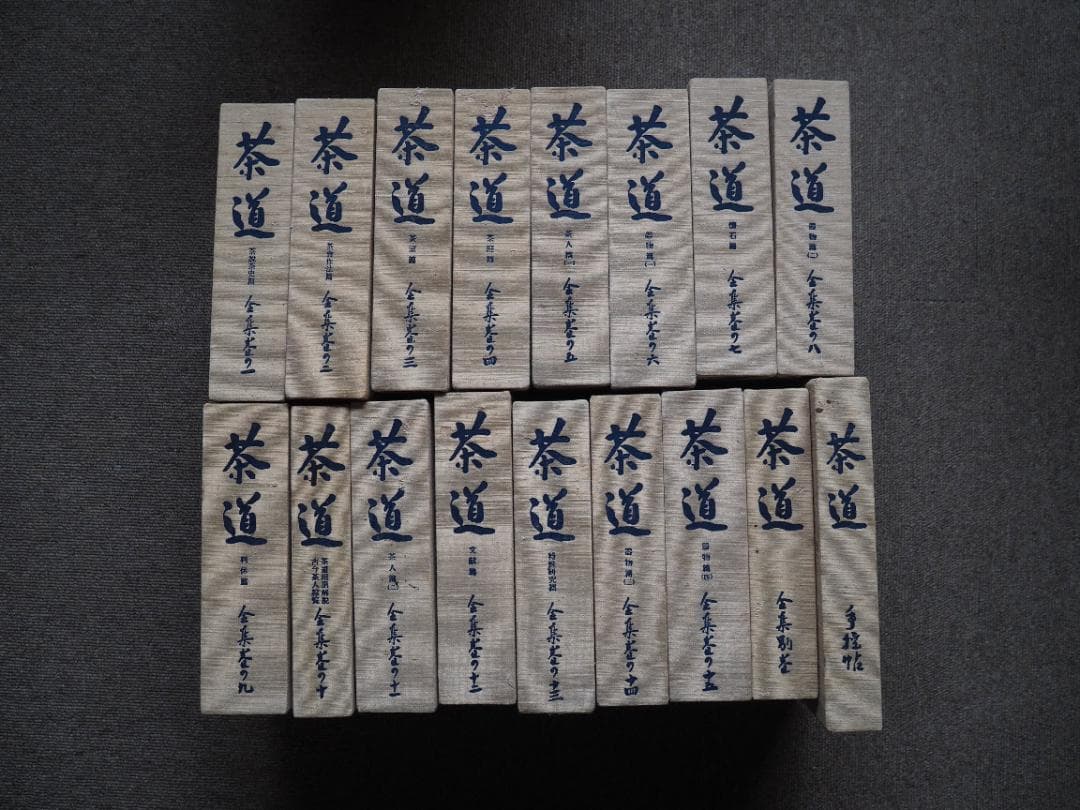 茶道 茶説茶史篇 全集巻の一
茶道 茶會作法篇 全集巻の二
茶道 茶室篇 全集巻の三
茶道 茶庭篇 全集巻の四
茶道 茶人篇(一) 全集巻の五
茶道 器物篇(一) 全集巻の六
茶道 懐石篇 全集巻の七
茶道 器物篇(二) 全集巻の八
茶道 利休篇 全集巻の九
茶道 古今茶人綜覧 全集巻の十
茶道 茶人篇(二) 全集巻の十一
茶道 文獻篇 全集巻の十二
茶道 特殊研究篇 全集巻の十三
茶道 器物篇(三) 全集巻の十四
茶道 器物篇(四) 全集巻の十五
茶道 全集別巻
茶道 手控帖